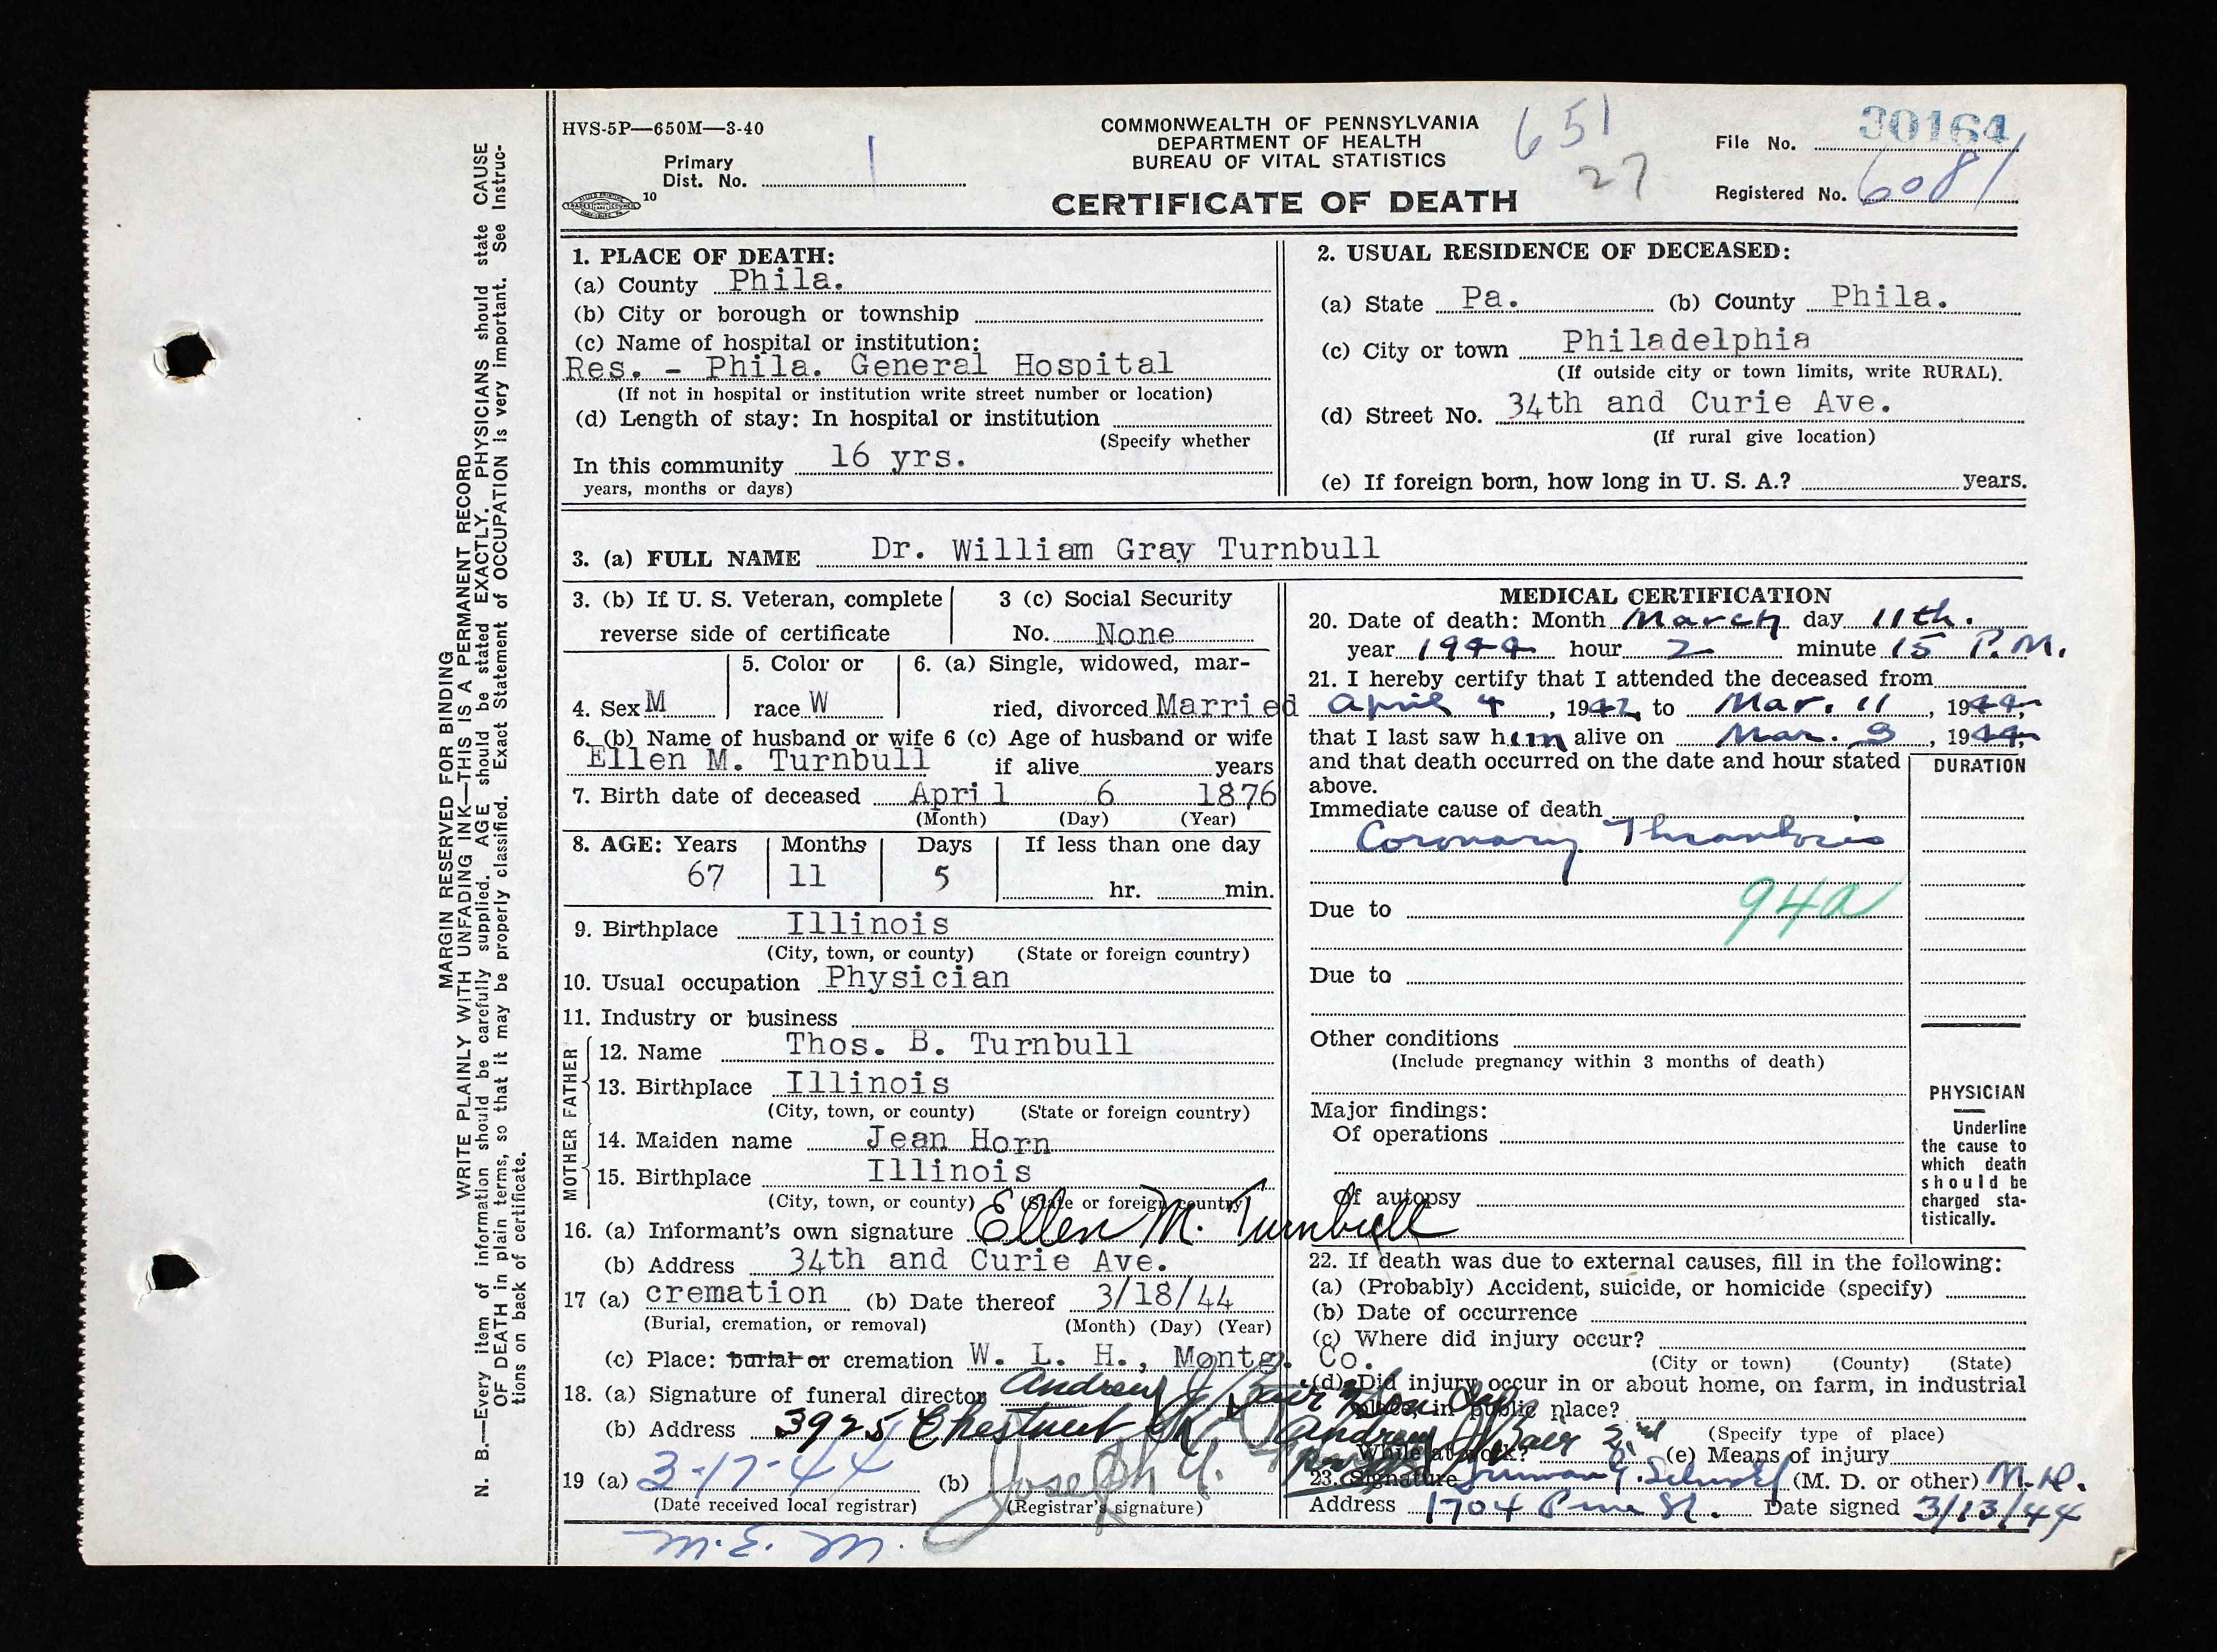 HVS-5P—650M—3-40
COMMONWEALTH OF PENNSYLVANIA
DEPARTMENT OF HEALTH
BUREAU OF VITAL STATISTICS
CERTIFICATE OF DEATH
651
27
Primary
Dist. No. 1
10
File No. 30164
Registered No. 6081
MARGIN RESERVED FOR BINDING
WRITE PLAINLY WITH UNFADING INK—THIS IS A PERMANENT RECORD
N. B.—Every item of information should be carefully supplied. AGE should be stated EXACTLY. PHYSICIANS should state CAUSE
OF DEATH in plain terms, so that it may be properly classified. Exact Statement of OCCUPATION is very important. See Instruc-
tions on back of certificate.
1. PLACE OF DEATH:
(a) County Phila.
(b) City or borough or township
(c) Name of hospital or institution:
Res. - Phila. General Hospital
(If not in hospital or institution write street number or location)
(d) Length of stay: In hospital or institution
(Specify whether
In this community 16 yrs.
years, months or days)
2. USUAL RESIDENCE OF DECEASED:
(a) State Pa. (b) County Phila.
(c) City or town Philadelphia
(If outside city or town limits, write RURAL).
(d) Street No. 34th and Curie Ave.
(If rural give location)
(e) If foreign born, how long in U. S. A.? years.
3. (a) FULL NAME Dr. William Gray Turnbull
3. (b) If U. S. Veteran, complete
reverse side of certificate
3 (c) Social Security
No. None
4. Sex M
5. Color or
race W
6. (a) Single, widowed, mar-
ried, divorced Married
6. (b) Name of husband or wife 6 (c) Age of husband or wife
Ellen M. Turnbull if alive years
7. Birth date of deceased April 6 1876
(Month) (Day) (Year)
8. AGE: Years Months Days If less than one day
67 11 5 hr. min.
9. Birthplace Illinois
(City, town, or county) (State or foreign country)
10. Usual occupation Physician
11. Industry or business
FATHER
12. Name Thos. B. Turnbull
13. Birthplace Illinois
(City, town, or county) (State or foreign country)
MOTHER
14. Maiden name Jean Horn
15. Birthplace Illinois
(City, town, or county) (State or foreign country)
16. (a) Informant's own signature Ellen M. Turnbull
(b) Address 34th and Curie Ave.
17 (a) cremation (b) Date thereof 3/18/44
(Burial, cremation, or removal) (Month) (Day) (Year)
(c) Place: burial or cremation W. L. H., Montg. Co.
18. (a) Signature of funeral director Andrew J Bair & Son
Andrew J Bair 2nd
(b) Address 3925 Chestnut St
19 (a) 3-17-44 (b) Joseph
(Date received local registrar) (Registrar's signature)
MEDICAL CERTIFICATION
20. Date of death: Month March day 11th.
year 1944 hour 2 minute 15 P.M.
21. I hereby certify that I attended the deceased from
April 4, 1942, to Mar. 11, 1944,
that I last saw him alive on Mar. 9, 1944,
and that death occurred on the date and hour stated
above.
DURATION
Immediate cause of death
Coronary Thrombosis
94a
Due to
Due to
Other conditions
(Include pregnancy within 3 months of death)
Major findings:
Of operations
Of autopsy
PHYSICIAN
Underline
the cause to
which death
should be
charged sta-
tistically.
22. If death was due to external causes, fill in the following:
(a) (Probably) Accident, suicide, or homicide (specify)
(b) Date of occurrence
(c) Where did injury occur?
(City or town) (County) (State)
(d) Did injury occur in or about home, on farm, in industrial
place, in public place?
(Specify type of place)
While at work? (e) Means of injury
23. Signature Truman G. Schnabel (M. D. or other) M.D.
Address 1704 Pine St. Date signed 3/13/44